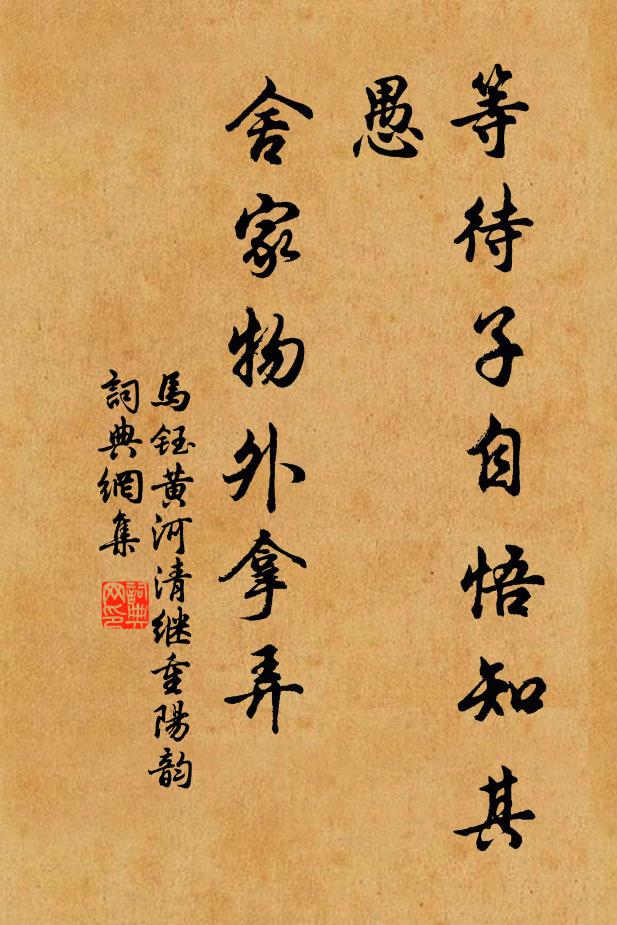 等待子自悟知其
愚
舍家物外拿弄
馬鈺黄河清继重陽韵
詞典網集
詞典
网印